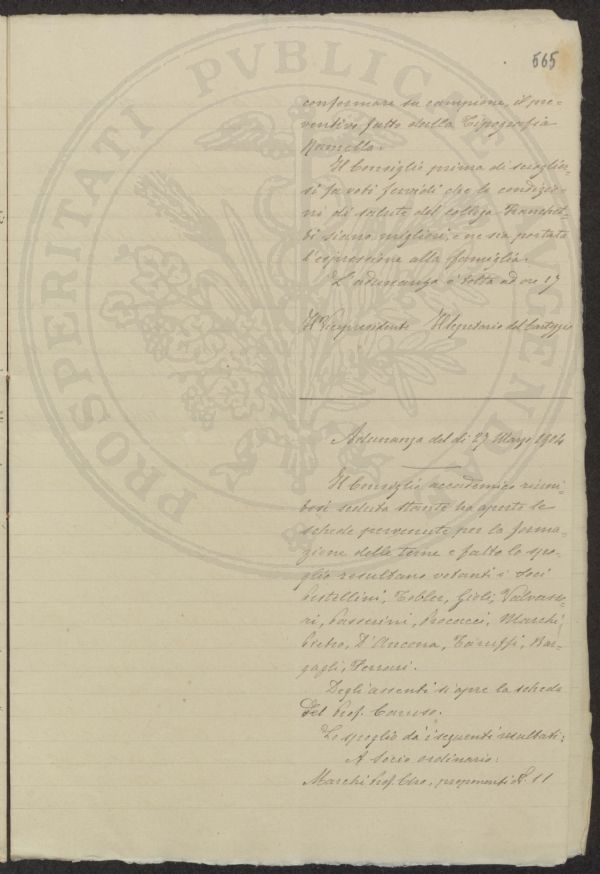 665
PROSPERITATI PVBLICAE AVGENDAE
conformare su campione, il pre-
ventivo fatto dalla Tipografia
Ramella.
Il Consiglio prima di scioglier-
si fa voti fervidi che le condizio-
ni di salute del collega Franchet-
ti siano migliori, e ne sia portata
l'espressione alla famiglia.
L'adunanza è tolta ad ore 17
Il Vicepresidente Il Segretario del Carteggio
Adunanza del dì 27 Marzo 1904
Il Consiglio accademico riuni-
tosi seduta stante ha aperte le
schede pervenute per la forma-
zione delle terne e fatto lo spo-
glio resultano votanti i Soci
Pestellini, Tobler, Gioli, Valvasso-
ri, Passerini, Procacci, Marchi
Pietro, D'Ancona, Taruffi, Bar-
gagli, Ferrari.
Degli assenti si apre la scheda
del Prof. Caruso.
Lo spoglio dà i seguenti resultati:
A Socio ordinario:
Marchi Prof. proponenti N. 11